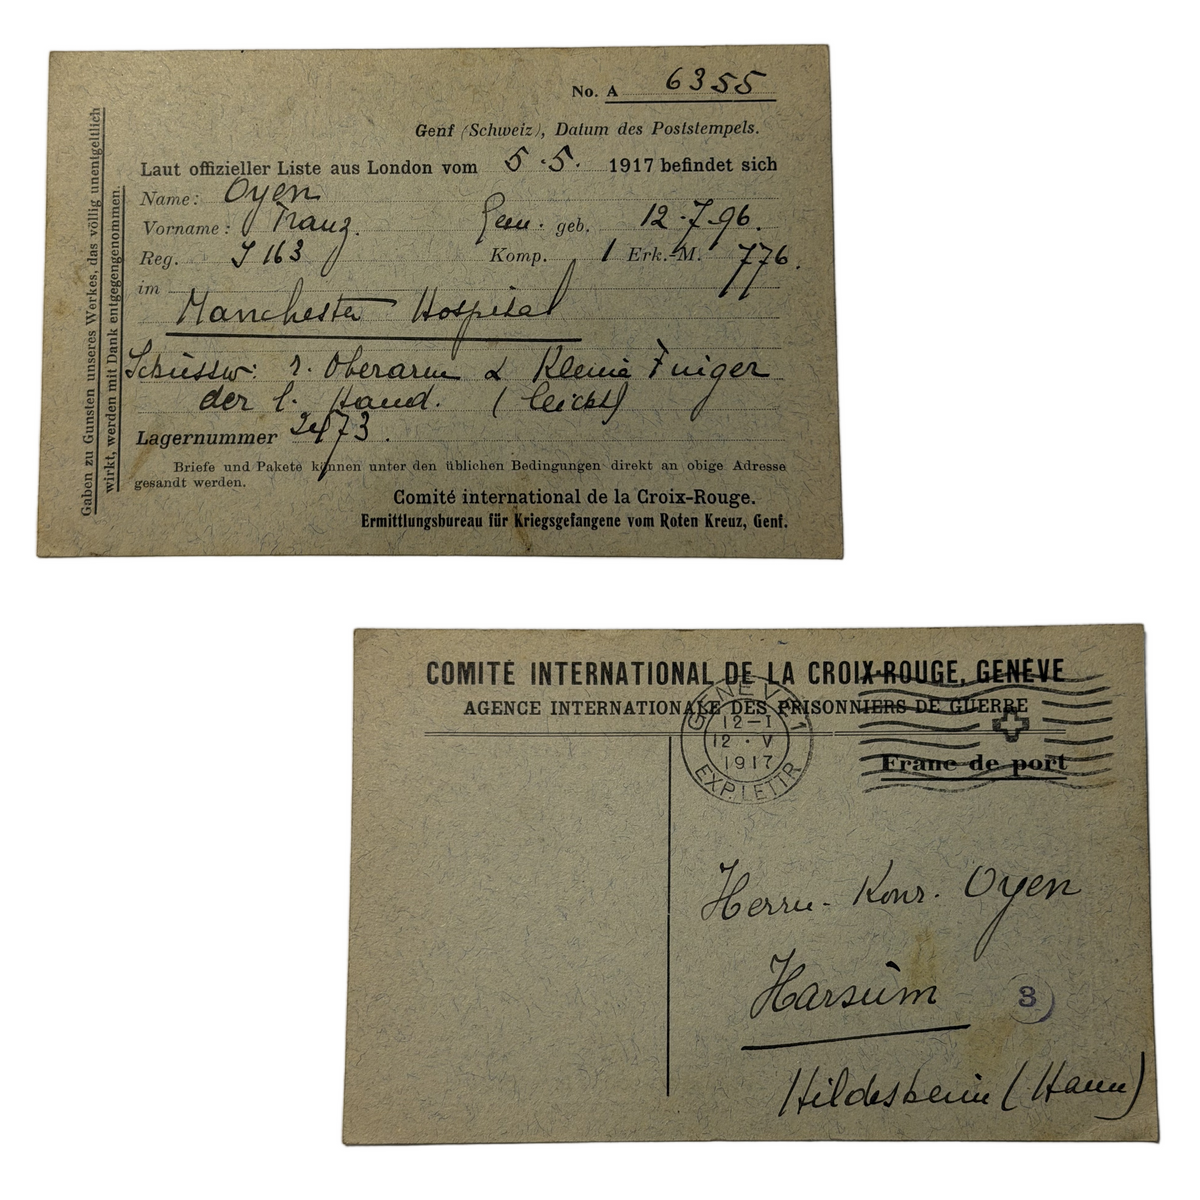 No. A 6355
Genf (Schweiz), Datum des Poststempels.
Laut offizieller Liste aus London vom 5.5. 1917 befindet sich
Name: Oyen
Vorname: Franz. Gem. geb. 12.7.96.
Reg. J 163 Komp. 1 Erk.-M. 776.
im
Manchester Hospital
Schüssw: r. Oberarm & Kleine Finger
der l. Hand. (leicht)
Lagernummer 2473.
Briefe und Pakete können unter den üblichen Bedingungen direkt an obige Adresse
gesandt werden.
Comité international de la Croix-Rouge.
Ermittlungsbureau für Kriegsgefangene vom Roten Kreuz, Genf.
Gaben zu Gunsten unseres Werkes, das völlig unentgeltlich
wirkt, werden mit Dank entgegengenommen.
COMITÉ INTERNATIONAL DE LA CROIX-ROUGE, GENÈVE
AGENCE INTERNATIONALE DES PRISONNIERS DE GUERRE
GENÈVE 1
12-I
12 · V
1917
EXP. LETTR
Franc de port
Herrn Konr. Oyen
Harsüm
3
Hildesheim (Hann)